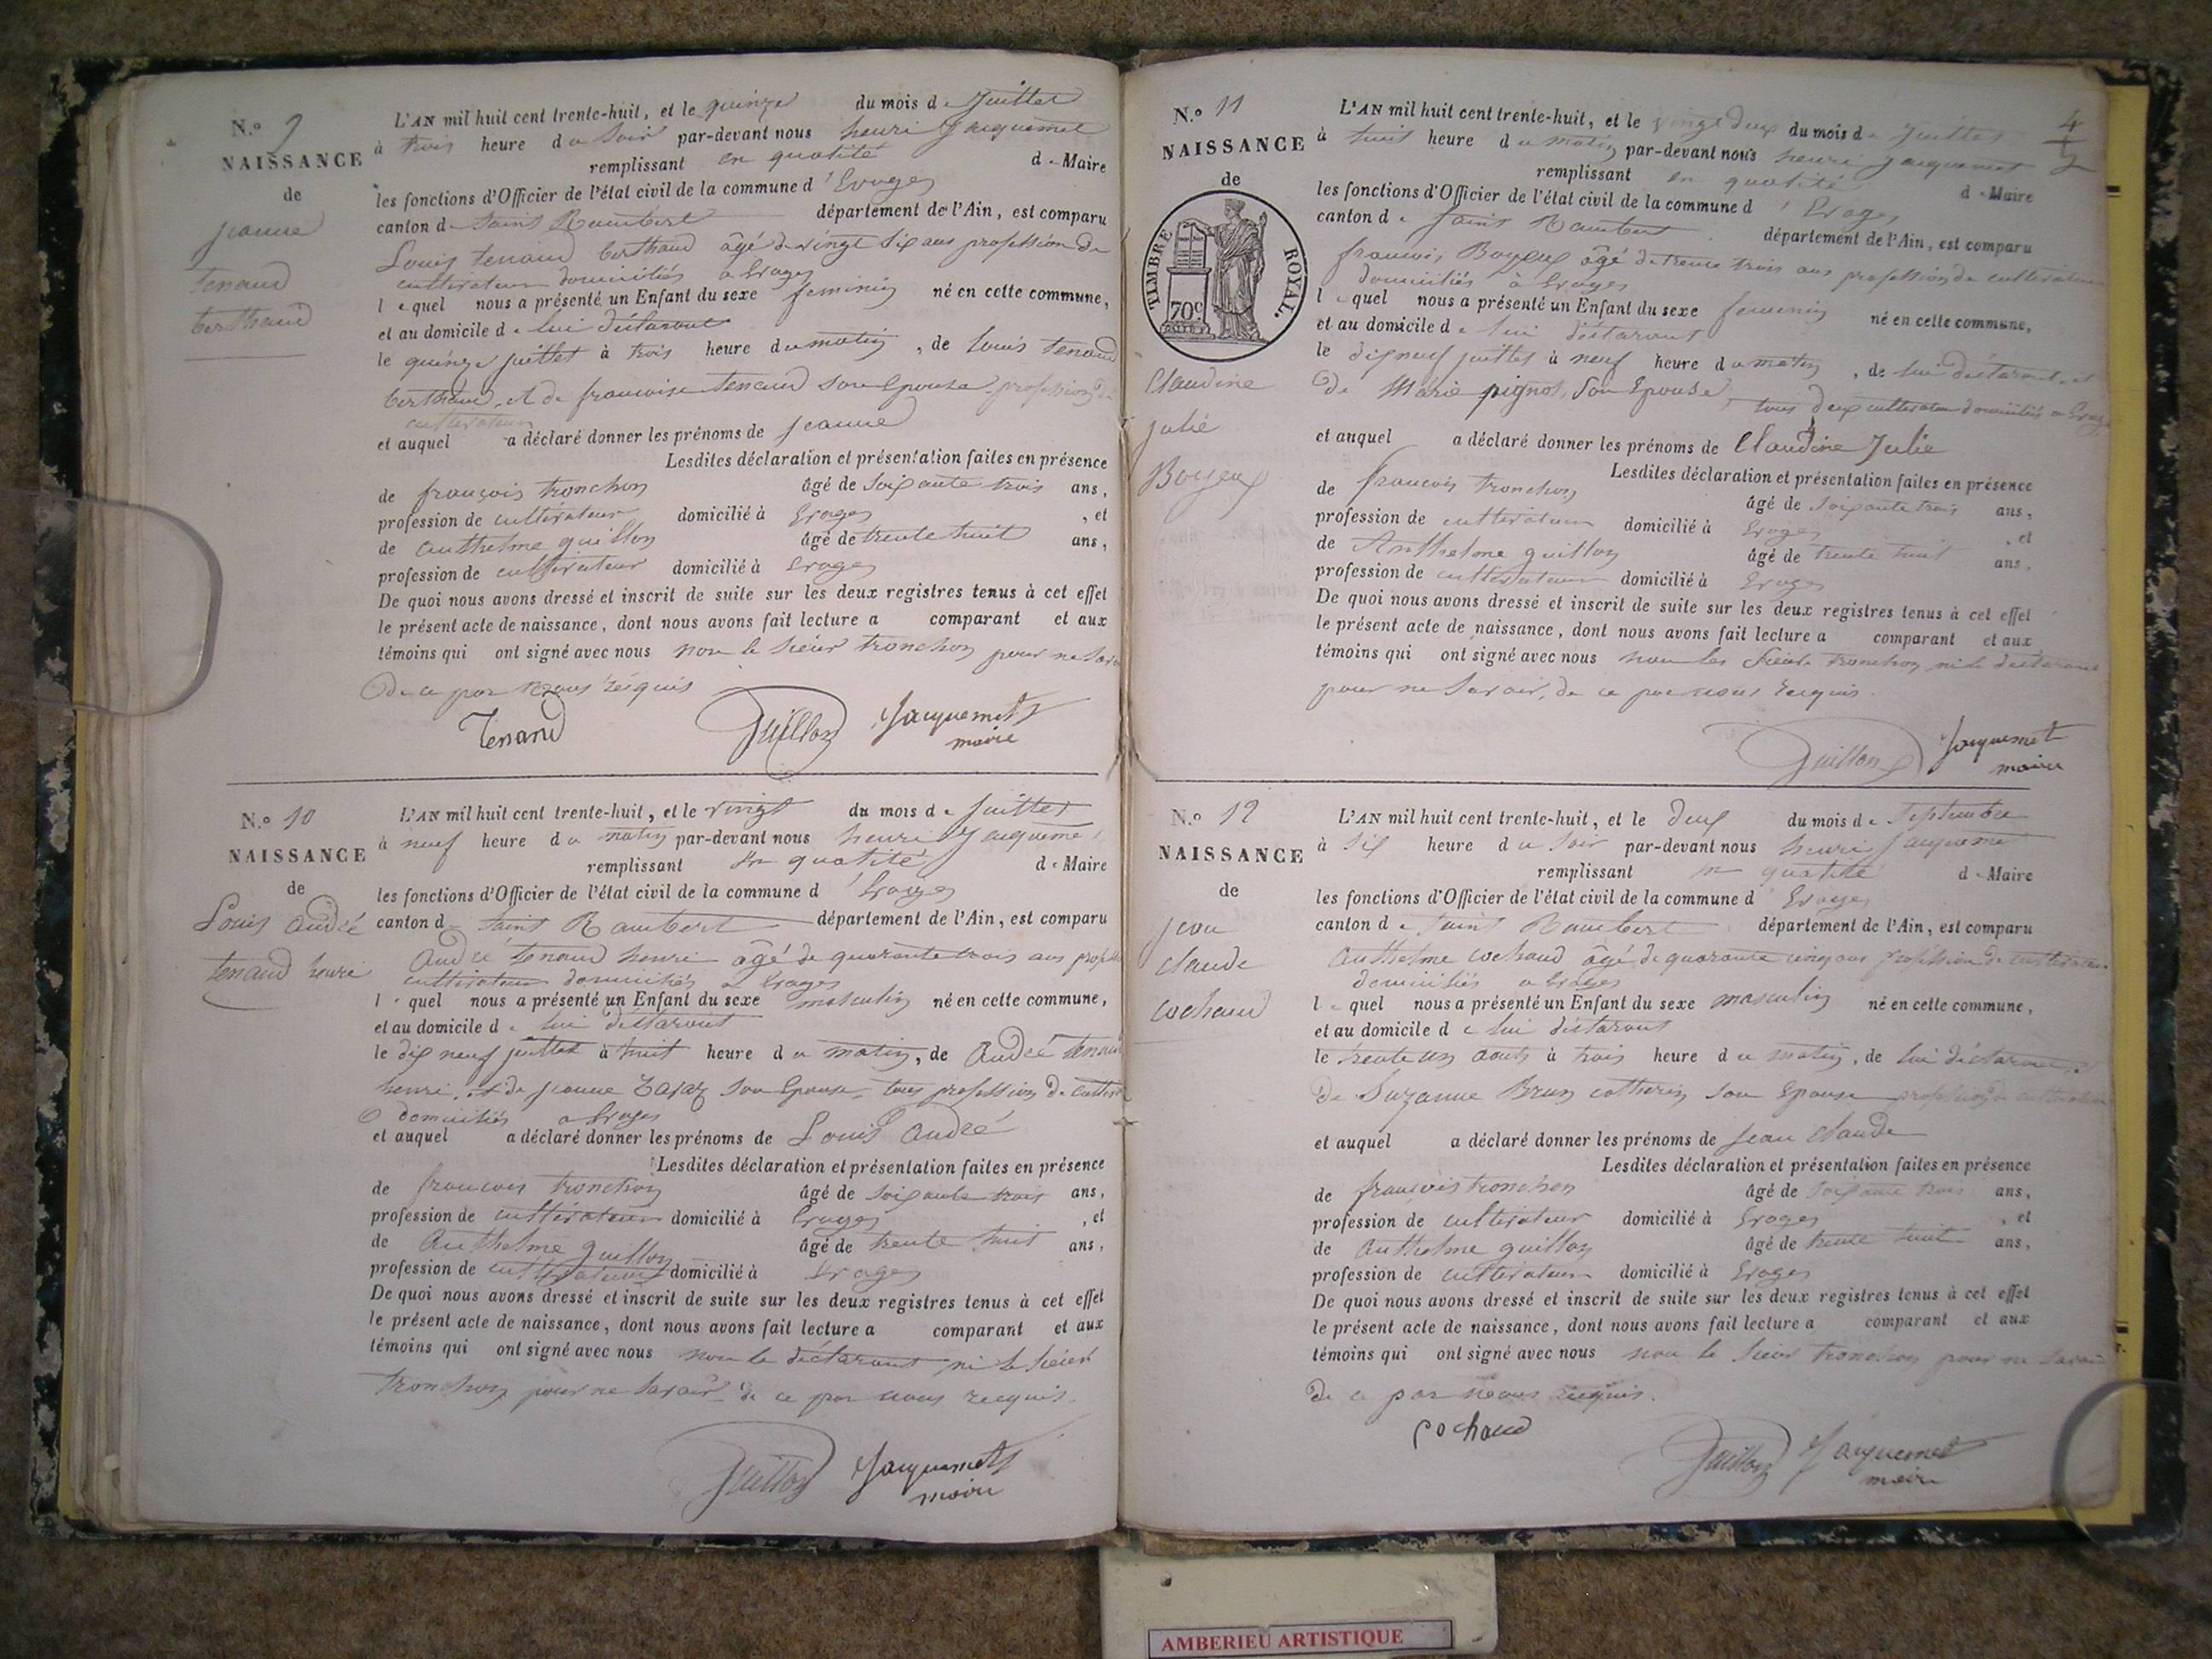 N.o 9
NAISSANCE
de
jeanne
tenand
berthaud
L'AN mil huit cent trente-huit, et le quinze du mois de Juillet
à trois heure du soir par-devant nous henri Jacquemet
remplissant en qualité de Maire
les fonctions d'Officier de l'état civil de la commune d'Evoges
canton de Saint Rambert département de l'Ain, est comparu
Louis tenand berthaud âgé de vingt six ans profession de
cultivateur domiciliés a Evoges
lequel nous a présenté un Enfant du sexe feminin né en cette commune,
et au domicile de lui déclarant
le quinze juillet à trois heure du matin, de Louis tenand
berthaud, et de francoise tenand son Epouse profession de
cultivateur
et auquel a déclaré donner les prénoms de jeanne
Lesdites déclaration et présentation faites en présence
de françois tronchon âgé de soixante trois ans,
profession de cultivateur domicilié à Evoges, et
de anthelme guillon âgé de trente huit ans,
profession de cultivateur domicilié à Evoges
De quoi nous avons dressé et inscrit de suite sur les deux registres tenus à cet effet
le présent acte de naissance, dont nous avons fait lecture a comparant et aux
témoins qui ont signé avec nous non le sieur tronchon pour ne savoir
de ce par nous requis
Tenand Guillon Jacquemet
maire
N.o 10
NAISSANCE
de
Louis andré
tenand henri
L'AN mil huit cent trente-huit, et le vingt du mois de Juillet
à neuf heure du matin par-devant nous henri Jacquemet
remplissant en qualité de Maire
les fonctions d'Officier de l'état civil de la commune d'Evoges
canton de Saint Rambert département de l'Ain, est comparu
André tenand henri âgé de quarante trois ans
cultivateur domiciliés a Evoges
lequel nous a présenté un Enfant du sexe masculin né en cette commune,
et au domicile de lui déclarant
le dix neuf juillet à huit heure du matin, de André tenand
henri, et de jeanne son Epouse tous profession de
domiciliés a Evoges
et auquel a déclaré donner les prénoms de Louis André
Lesdites déclaration et présentation faites en présence
de françois tronchon âgé de soixante trois ans,
profession de cultivateur domicilié à Evoges, et
de Anthelme guillon âgé de trente huit ans,
profession de cultivateur domicilié à Evoges
De quoi nous avons dressé et inscrit de suite sur les deux registres tenus à cet effet
le présent acte de naissance, dont nous avons fait lecture a comparant et aux
témoins qui ont signé avec nous non le déclarant ni le sieur
tronchon pour ne savoir de ce par nous requis.
Guillon Jacquemet
maire
N.o 11
NAISSANCE
de
TIMBRE ROYAL.
70c
Claudine
julie
Boyeux
L'AN mil huit cent trente-huit, et le vingt deux du mois de Juillet
à huit heure du matin par-devant nous henri jacquemet
remplissant en qualité de Maire
les fonctions d'Officier de l'état civil de la commune d'Evoges
canton de Saint Rambert département de l'Ain, est comparu
francois Boyeux âgé de trente trois ans profession de cultivateur
domiciliés à Evoges
lequel nous a présenté un Enfant du sexe feminin né en cette commune,
et au domicile de lui déclarant
le dix neuf juillet à neuf heure du matin, de lui déclarant, et
de Marie pignot, son Epouse, tous deux cultivateur domiciliés a Evoges
et auquel a déclaré donner les prénoms de Claudine Julie
Lesdites déclaration et présentation faites en présence
de francois tronchon âgé de soixante trois ans,
profession de cultivateur domicilié à Evoges, et
de Anthelme guillon âgé de trente huit ans,
profession de cultivateur domicilié à Evoges
De quoi nous avons dressé et inscrit de suite sur les deux registres tenus à cet effet
le présent acte de naissance, dont nous avons fait lecture a comparant et aux
témoins qui ont signé avec nous non les sieur tronchon, ni le déclarant
pour ne savoir, de ce par nous requis.
Guillon Jacquemet
maire
N.o 12
NAISSANCE
de
jean
claude
cochaud
L'AN mil huit cent trente-huit, et le deux du mois de Septembre
à six heure du soir par-devant nous henri jacquemet
remplissant en qualité de Maire
les fonctions d'Officier de l'état civil de la commune d Evoges
canton de Saint Rambert département de l'Ain, est comparu
Anthelme cochaud âgé de quarante cinq ans profession de cultivateur
domiciliés a Evoges
lequel nous a présenté un Enfant du sexe masculin né en cette commune,
et au domicile de lui déclarant
le trente un aout, à trois heure du matin, de lui déclarant, et
de Suzanne Brun catherin son Epouse profession de cultivateur
et auquel a déclaré donner les prénoms de Jean claude
Lesdites déclaration et présentation faites en présence
de françois tronchon âgé de soixante trois ans,
profession de cultivateur domicilié à Evoges, et
de anthelme guillon âgé de trente huit ans,
profession de cultivateur domicilié à Evoges
De quoi nous avons dressé et inscrit de suite sur les deux registres tenus à cet effet
le présent acte de naissance, dont nous avons fait lecture a comparant et aux
témoins qui ont signé avec nous non le sieur tronchon pour ne savoir
de ce par nous requis.
cochaud
Guillon Jacquemet
maire
AMBERIEU ARTISTIQUE